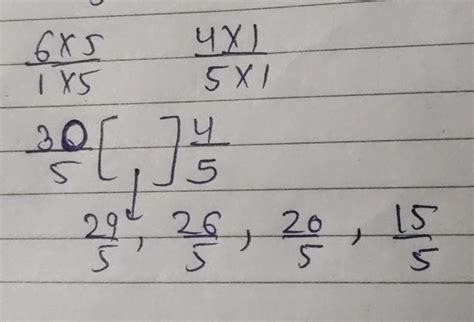 6×5/1×5 4×1/5×1
30/5 [ , ] 4/5
29/5, 26/5, 20/5, 15/5